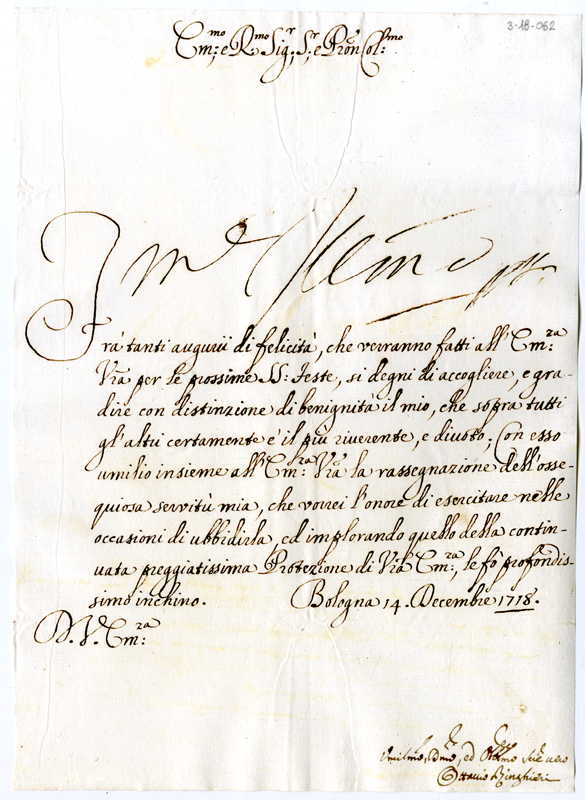 3-18-062
Em:mo e R.mo Sig.r, S.r e Pron Col:mo
Frà tanti augurii di felicità, che verranno fatti all'Em:ra
Vra per le prossime SS: Feste, si degni di accogliere, e gra-
dire con distinzione di benignità il mio, che sopra tutti
gl'altri certamente è il più riverente, e divoto; Con esso
umilio insieme all'Em:ra Vra la rassegnazione dell'osse-
quiosa servitù mia, che vorrei l'onore di esercitare nelle
occasioni di ubbidirla, ed implorando quello della contin-
uata preggiatissima Protezione di Vra Em:ra, le fò profondis-
simo inchino. Bologna 14. Decembre 1718.
D. V. Em:ra
Umilmo, Dmo, ed Obmo
Ottavio